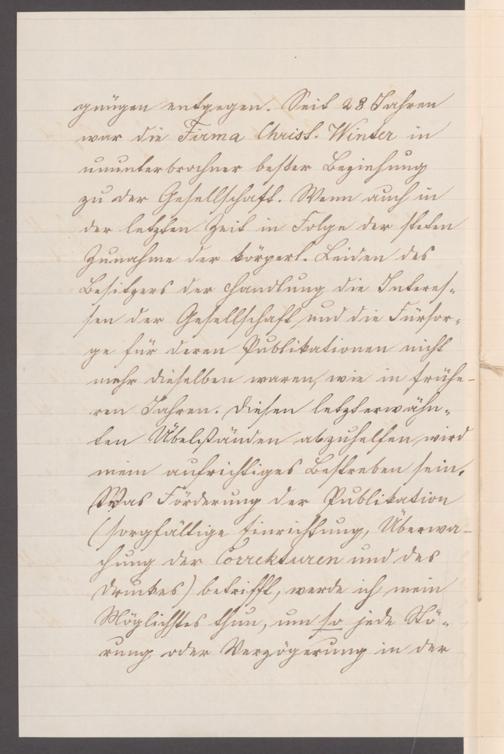 gnügen entgegen. Seit 28 Jahren
war die Firma Christ. Winter in
ununterbrochner bester Beziehung
zu der Gesellschaft. Wenn auch in
der letzten Zeit in Folge der steten
Zunahme der körperl. Leiden des
Besitzers der Handlung die Interes-
sen der Gesellschaft und die Fürsor-
ge für deren Publikationen nicht
mehr dieselben waren, wie in frühe-
ren Jahren. Diesen letzterwähn-
ten Übelständen abzuhelfen, wird
mein aufrichtiges Bestreben sein.
Was Förderung der Publikation
(sorgfältige Einrichtung, Überwa-
chung der Correkturen und des
Druckes) betrifft, werde ich mein
Möglichstes thun, um so jede Stö-
rung oder Verzögerung in der